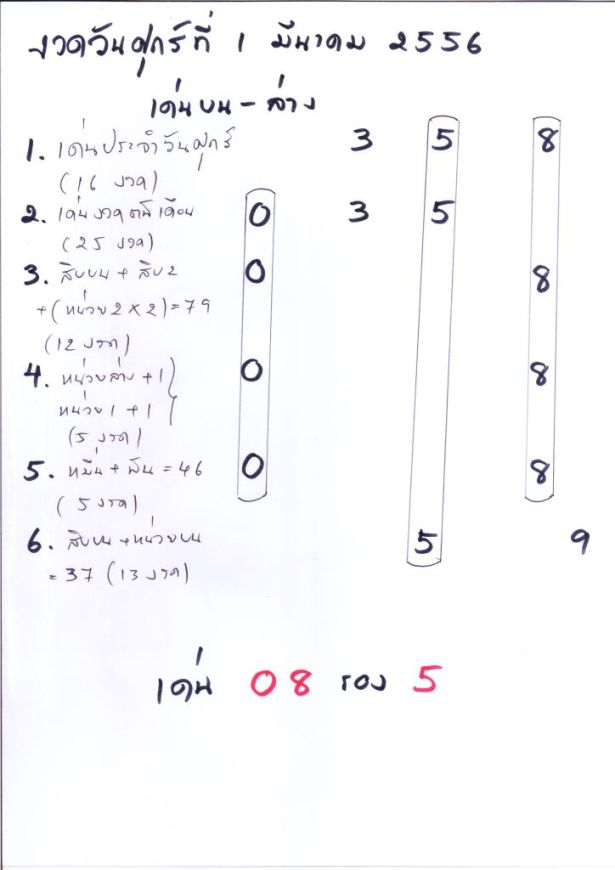 งวดวันศุกร์ที่ 1 มีนาคม 2556
เด่นบน - ล่าง
1. เด่นประจำวันศุกร์ 3 5 8
(16 งวด)
2. เด่นงวดต้นเดือน 0 3 5
(25 งวด)
3. สิบบน + สิบ2 0 8
+(หน่วย2 x 2)=79
(12 งวด)
4. หน่วยล่าง +1 0 8
หน่วย1 +1
(5 งวด)
5. หมื่น + พัน = 46 0 8
(5 งวด)
6. สิบบน +หน่วยบน 5 9
= 37 (13 งวด)
เด่น 08 รอง 5